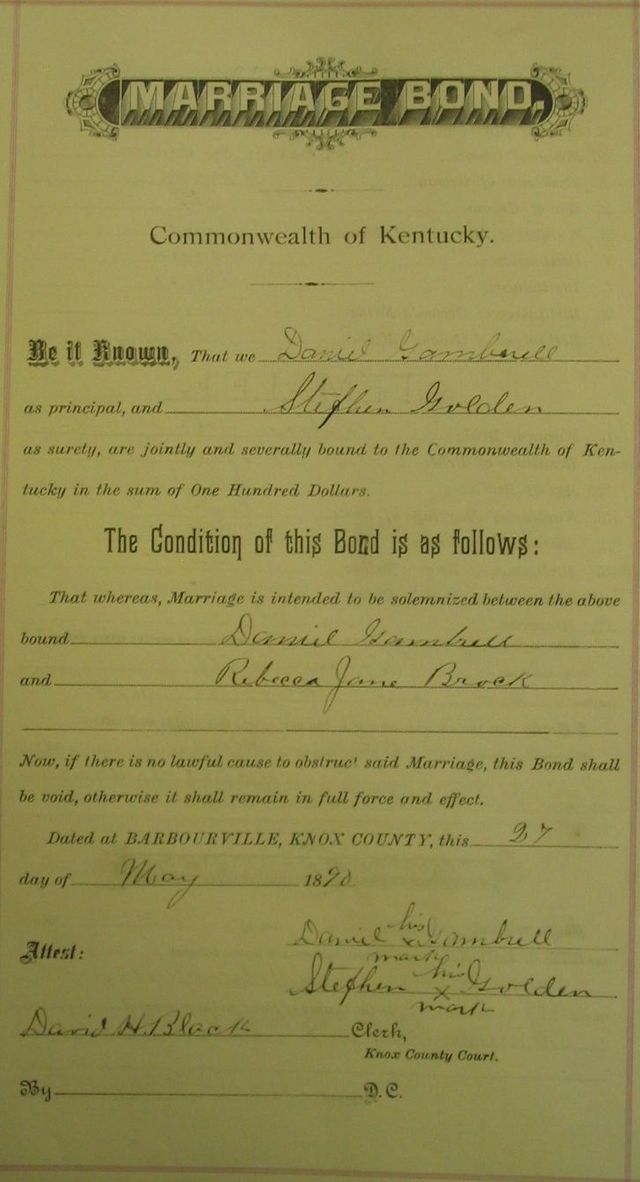 MARRIAGE BOND.
Commonwealth of Kentucky.
Be it Known, That we Daniel Gambrell
as principal, and Stephen Golden
as surety, are jointly and severally bound to the Commonwealth of Ken-
tucky in the sum of One Hundred Dollars.
The Condition of this Bond is as follows:
That whereas, Marriage is intended to be solemnized between the above
bound Daniel Gambrell
and Rebecca Jane Brock
Now, if there is no lawful cause to obstruct said Marriage, this Bond shall
be void, otherwise it shall remain in full force and effect.
Dated at BARBOURVILLE, KNOX COUNTY, this 27
day of May 1890.
Daniel his x mark Gambrell
Attest:
Stephen his x mark Golden
David H. Black Clerk,
Knox County Court.
By D. C.